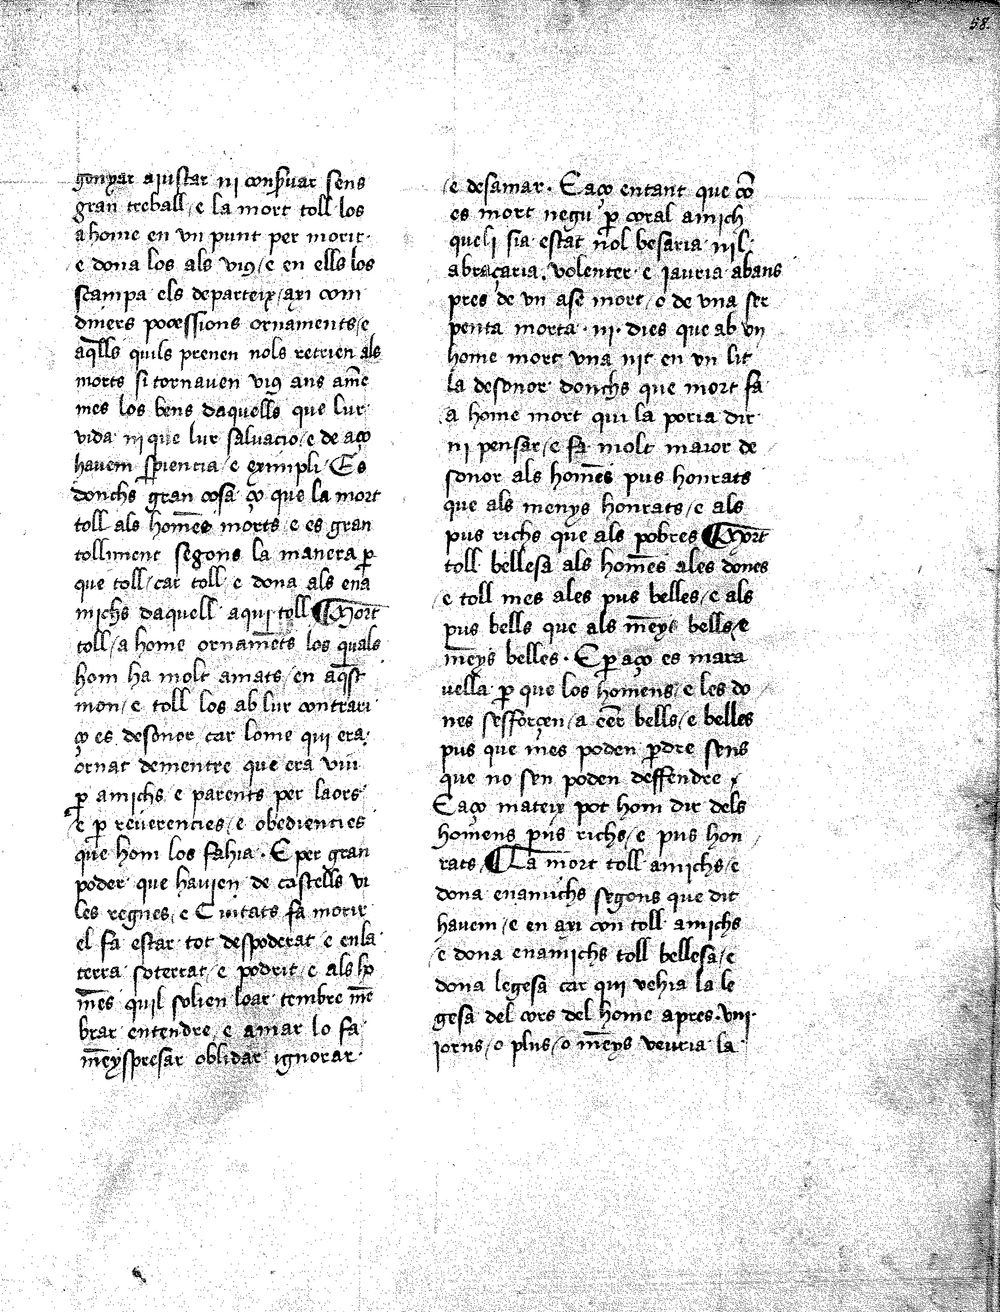 58
genyar aiustar ni conp̄uar sens
gran treball / e la mort toll los
a home en vn punt per morir ·
e dona los als viꝯ / e en ells los
scampa els departeix / axi com
diners possessions ornaments / e
aq̄lls quils prenen nols retrien als
morts si tornauen viꝯ ans am̄e
mes los bens daquells que lur
vida ni que lur saluacio / e de aço
hauem sp̄iencia / e eximpli · Es
donchs gran cosa ço que la mort
toll als hom̄es morts / e es gran
tolliment segons la manera ꝑ
que toll / car toll e dona als ena
michs daquell a qui toll ¶ Mort
toll / a home ornamēts los quals
hom ha molt amats / en aq̄st
mon / e toll los ab lur contrari
ço es desonor car lome qui era
ornat dementre que era viu
ꝑ amichs e parents per laors
e ꝑ reuerencies / e obediencies
que hom los fahia · E per gran
poder que hauien de castells vi
les regnes / e Ciutats fa morir
el fa estar tot despoderat / e en la
terra soterrat / e podrit / e als ho
m̄es quil solien loar tembre m̄e
brar entendre e amar lo fa
m̄eyspresar oblidar ignorar ·
/ e desamar · E aço entant que cō
es mort negu ꝑ coral amich
que li sia estat nol besaria nil
abraçaria · volenter e iauria abans
pres de vn ase mort / o de vna ser
penta morta · ni · dies que ab vn
home mort vna nit en vn lit
la desonor donchs que mort fa
a home mort qui la poria dir
ni pensar / e fa molt maior de
sonor als hom̄es pus honrats
que als menys honrats / e als
pus richs que als pobres ¶ Mort
toll bellesa als hom̄es a les dones
/ e toll mes a les pus belles / e als
pus bells que als m̄eys bells / e
m̄eys belles · E ꝑ aço es mara
uella ꝑ que los homens / e les do
nes sesforçen / a ēer bells / e belles
pus que mes poden ꝑdre sens
que no sen poden deffendre
E aço mateix pot hom dir dels
homens pus richs / e pus hon
rats ¶ La mort toll amichs / e
dona enamichs segons que dit
hauem / e en axi con toll amichs
/ e dona enamichs toll bellesa / e
dona legesa car qui vehia la le
gesa del cors del home apres · viii ·
iorns / o plus / o m̄eys veuria la